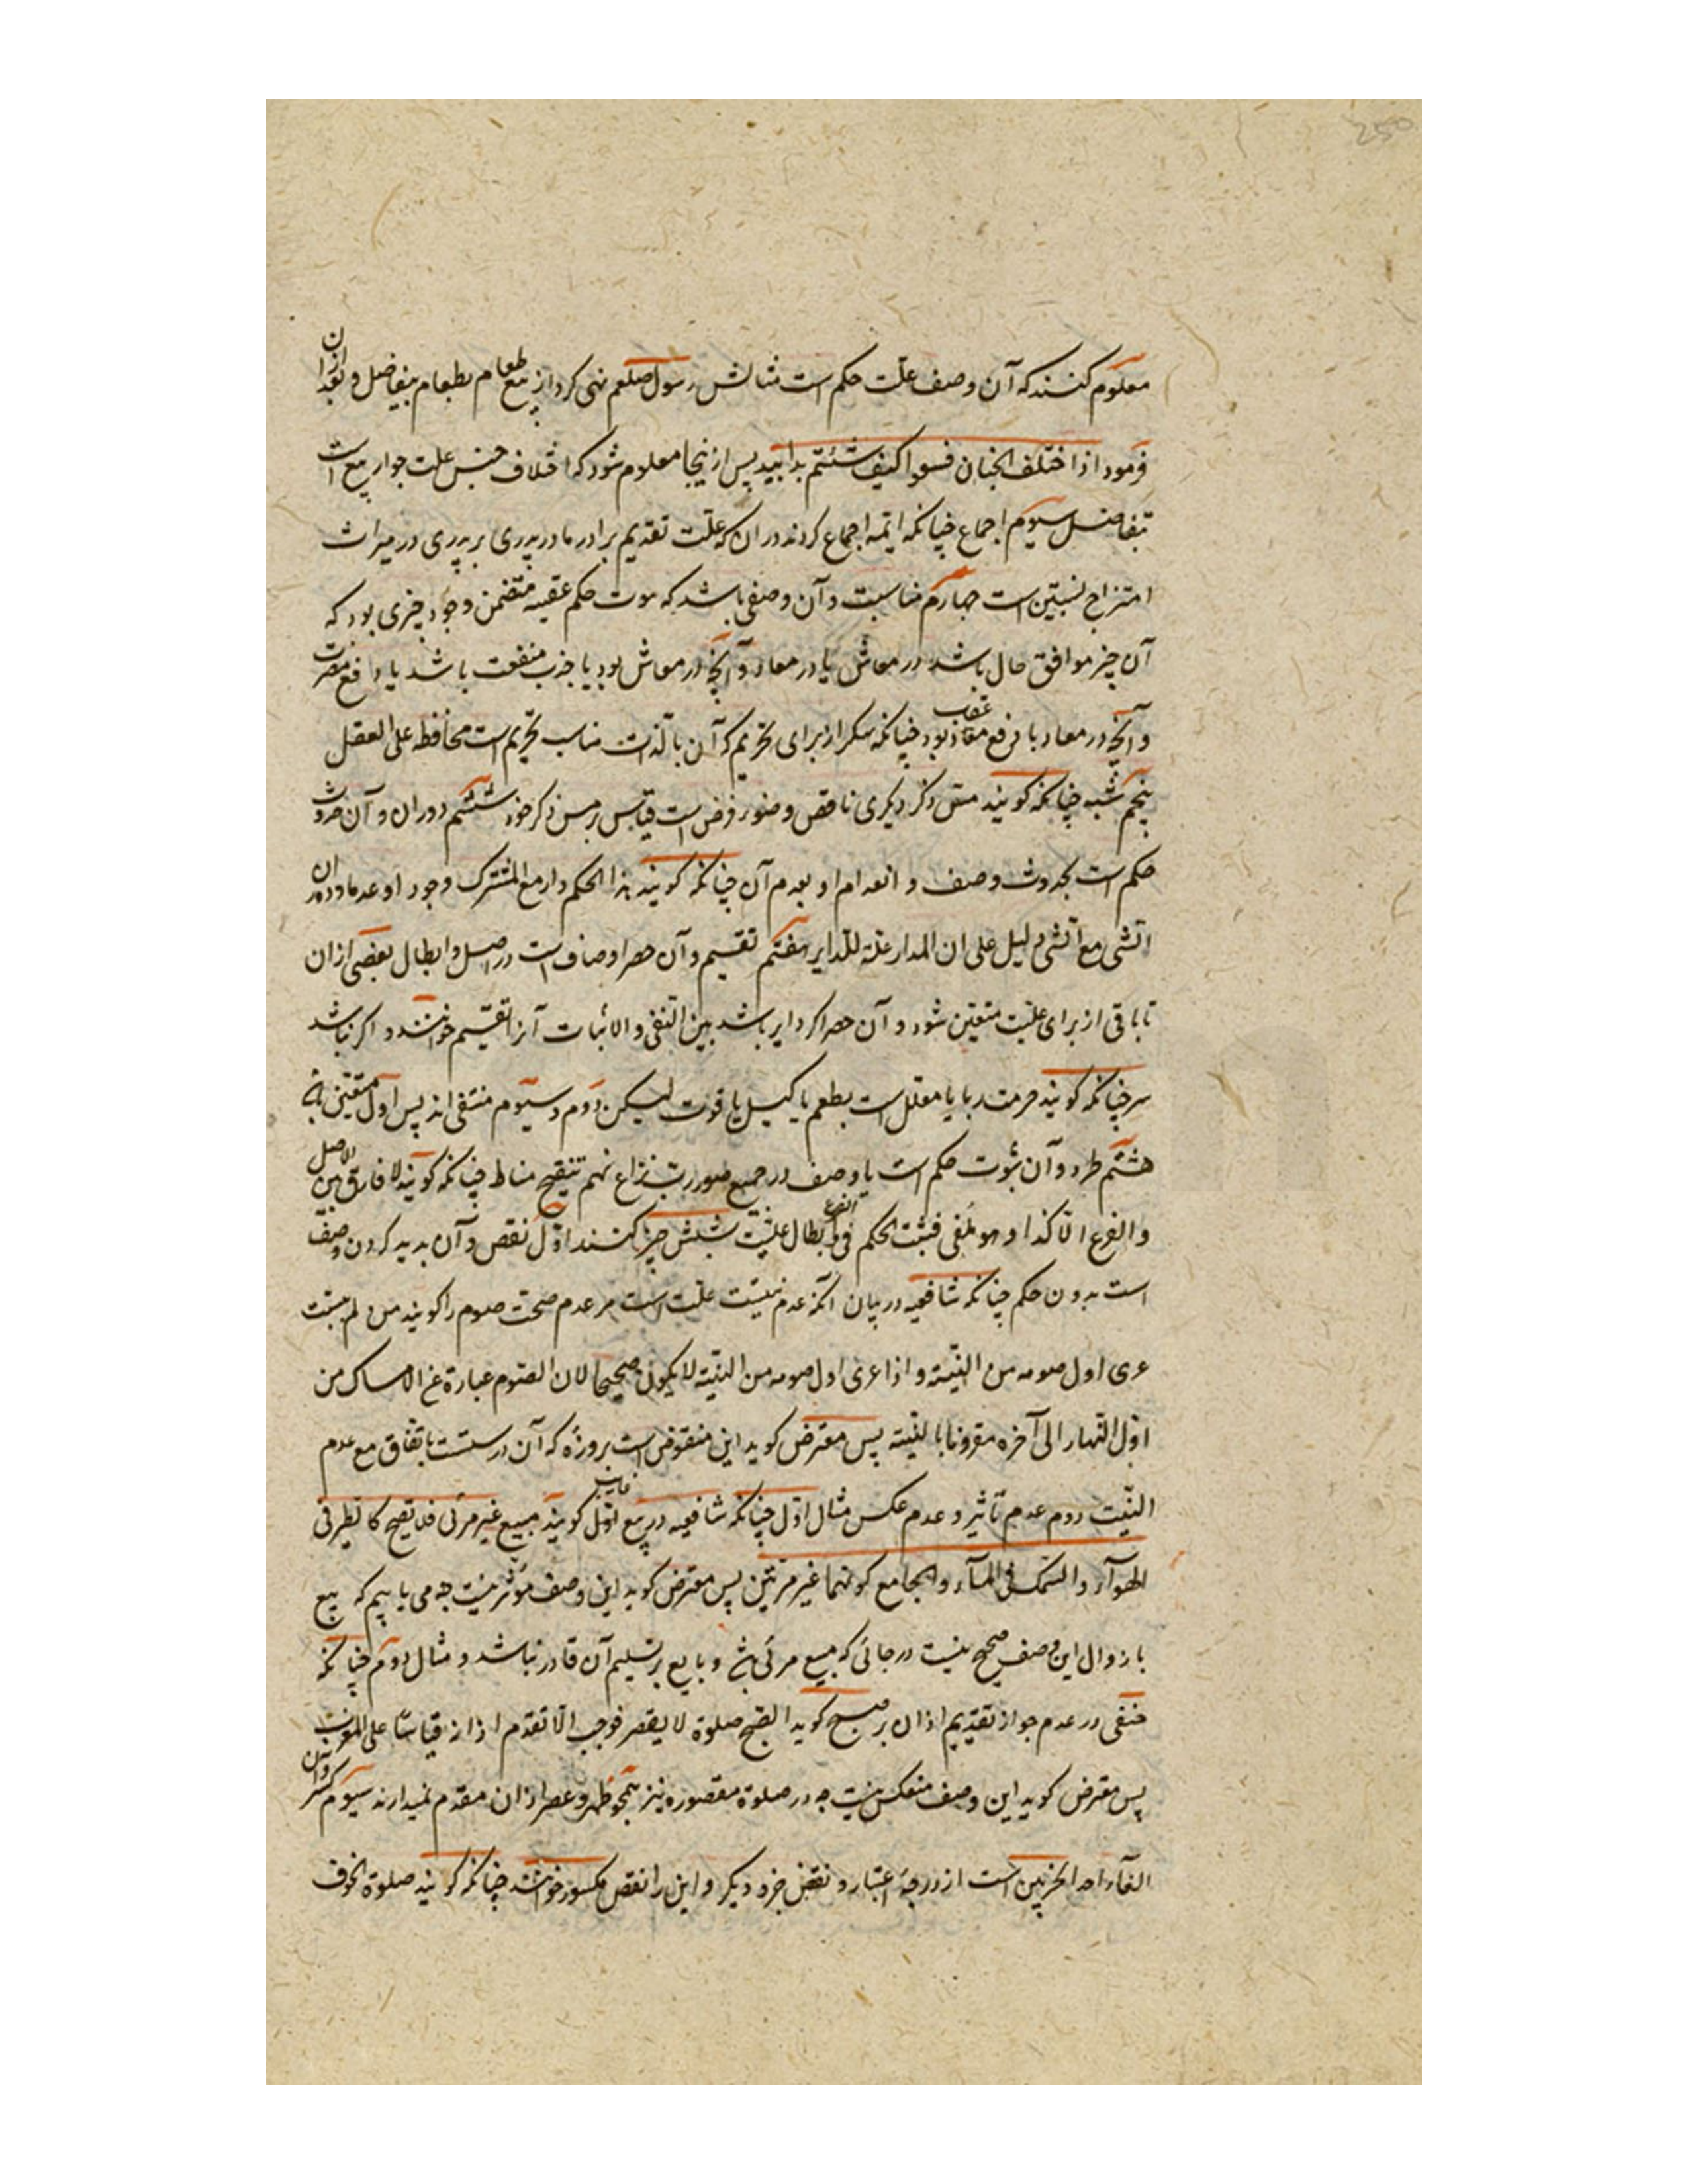 250
معلوم کنند که آن وصف علّت حکم است مثالش رسول صلعم نهی کرد از بیع طعام بطعام بتفاضل و بعد ازان
فرمود اذا اختلف الجنسان فبیعوا کیف شئتم یدا بید پس ازینجا معلوم شود که اختلاف جنس علت جواز بیع است
بتفاضل سیوم اجماع چنانکه ایمه اجماع کردند در ان که علّت تقدیم برادر مادر پدری بر پدری در میراث
امتزاج نسبتین است چهارم مناسبت و آن وصفی باشد که حکم عقیبه متضمن وجود چیزی بود که
آن چیز موافق حال باشد در معاش یا در معاد و آنچه در معاش بود یا جذب منفعت باشد یا دافع مضرت
و آنچه در معاد یا رفع عقاب بود چنانکه سکر از برای تحریم که آن بالذات مناسب تحریم است محافظة علی العقل
پنجم شبه چنانکه کویند مسّ ذکر دیکری ناقض وضو فرض است قیاس بر مس ذکر خود ششم دوران و آن حدوث
حکم است بحدوث وصف و انعدام او بعدم آن چنانکه کویند هذا الحکم دار مع المشترک وجودا و عدما و دوران
الشی مع الشی دلیل علی ان المدار علة للدایر هفتم تقسیم و آن حصر اوصاف است در اصل و ابطال بعضی ازان
تا باقی از برای علیّت متعیّن شود و آن حصر اکر دایر باشد بین النفی و الاثبات آنرا تقسیم خوانند و اکر نباشد
سبر چنانکه کویند حرمت ربا یا معلل است بطعم یا کیل یا قوت لیکن دوم و سیوم منتفی اند پس اول متعیّن باشد
هشتم طرد و آن ثبوت حکم است با وصف در جمیع صور نزاع نهم تنقیح مناط چنانکه کویند لا فارق بین الاصل
و الفرع الّا کذا و هو ملغی فثبت الحکم فی الفرع و ابطال علیّت بشش چیز کنند اوّل نقض و آن پدید کردن وصف
است بدون حکم چنانکه شافعیه در بیان آنکه عدم نیّت علّت است مر عدم صحت صوم را کویند من لم یبیّت
عری اول صومه من النیّة و اذا عری اول صومه من النیّة لا یکون صحیحا لان الصّوم عبارة عن الامساک من
اوّل النّهار الی آخره مقرونا بالنیّة پس معترض کوید این منقوض است بروزهٔ که آن درستست باتفاق مع عدم
النیّت دوم عدم تأثیر و عدم عکس مثال اوّل چنانکه شافعیه در بیع غایب کویند مبیع غیر مرئی فلا یصح کالطیر فی
الهوآء و السّمک فی المآء و الجامع کونهما غیر مرئیین پس معترض کوید این وصف مؤثر نیست چه می یابیم که بیع
با زوال این وصف صحیح نیست در جائی که مبیع مرئی باشد و بایع بر تسلیم آن قادر نباشد و مثال دوم چنانکه
حنفی در عدم جواز تقدیم اذان بر صبح کوید الصّبح صلوة لا یقصر فوجب الّا تقدم اذانه قیاسًا علی المغرب
پس معترض کوید این وصف منعکس نیست چه در صلوة مقصوره نیز همچو ظهر و عصر اذان مقدم نمیدارند سیوم کسر و آن
الغآء احد الجزئین است از درجهٔ اعتبار و نقض جزء دیکر و این را نقض مکسور خوانند چنانکه کویند صلوة الخوف